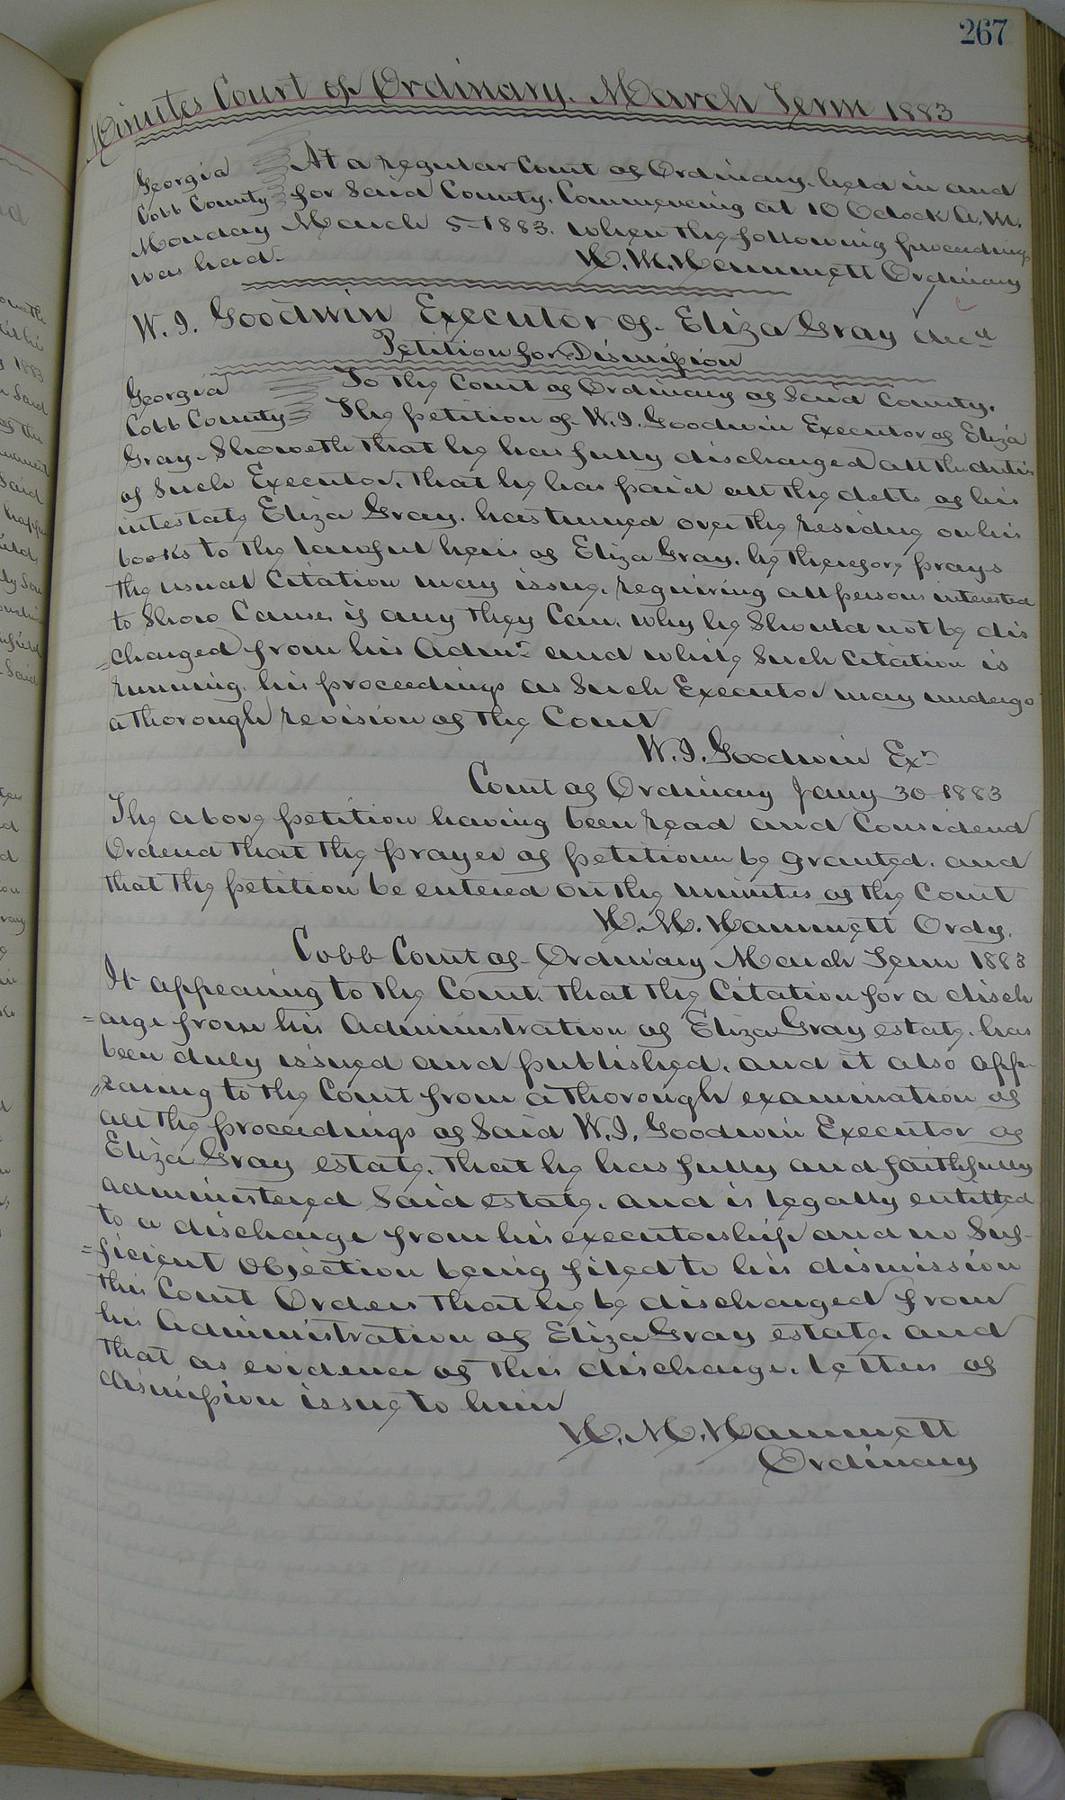 267
Minutes Court of Ordinary. March Term 1883
Georgia At a regular Court of Ordinary, held in and
Cobb County for Said County. Commencing at 10 Oclock A.M.
Monday March 5-1883. when the following proceedings
was had.
H. M. Hammett Ordinary
W. I. Goodwin Executor of Eliza Gray decd
Petition for Dismission
Georgia To the Court of Ordinary of Said County.
Cobb County The petition of W. I. Goodwin Executor of Eliza
Gray. Showeth that he has fully discharged all the duties
of Such Executor, that he has paid all the debts of his
intestate Eliza Gray. has turned over the residue on his
books to the lawful heirs of Eliza Gray, he therefore prays
the usual Citation may issue, requiring all persons interested
to Show Cause, if any they Can, why he Should not be dis
=charged from his Admr and while Such Citation is
running, his proceedings as Such Executor may undergo
a thorough revision of the Court
W. I. Goodwin Exr
Court of Ordinary Jany 30 1883
The above petition having been read and Considend
Ordend that the prayer of petitionn be granted. and
that the petition be entered on the minutes of the Court
H. M. Hammett Ordy.
Cobb Court of Ordinary March Term 1883
It appearing to the Court, that the Citation for a disch
=arge from his Administration of Eliza Gray estate. has
been duly issued and published, and it also app-
=earing to the Court from a thorough examination of
all the proceedings of Said W. I. Goodwin Executor of
Eliza Gray estate. that he has fully and faithfully
administered Said estate. and is legally entitled
to a discharge from his executorship and no Suf-
=ficient Objection being filed to his dismission
this Court Orders that he be discharged from
his Administration of Eliza Gray estate. and
that as evidence of this discharge. letters of
dismission issue to him
H. M. Hammett
Ordinary